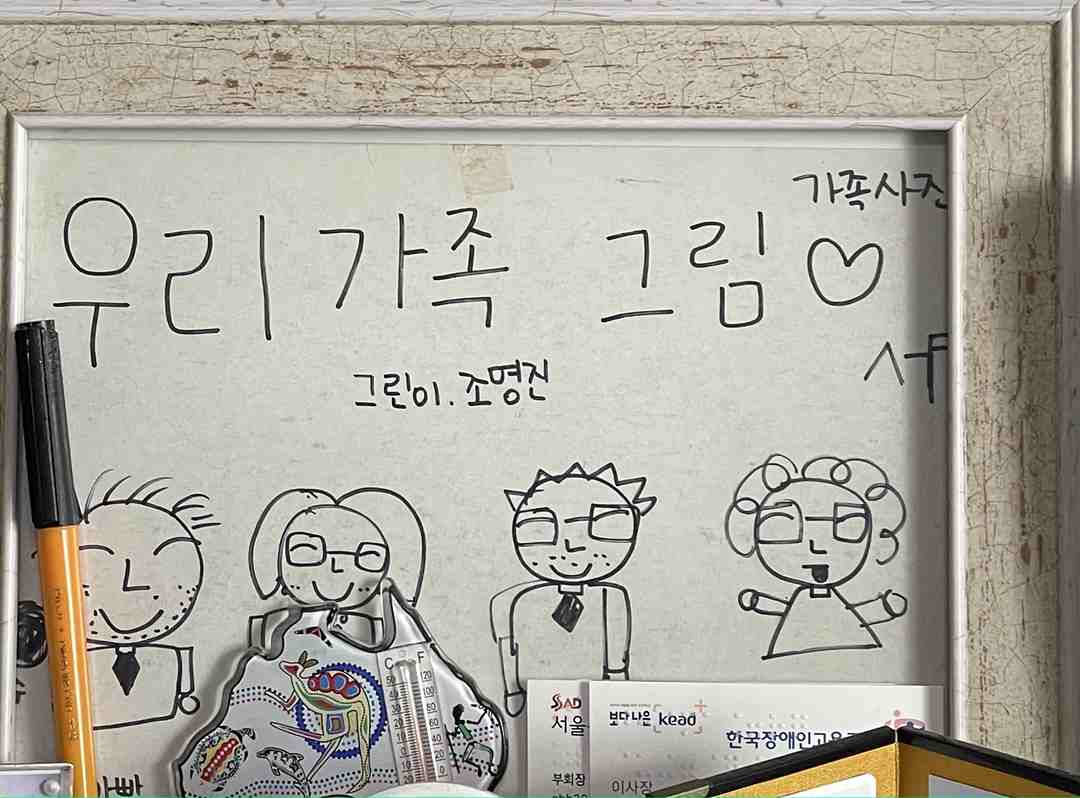 가족사진
우리 가족 그림♡
그린이. 조명진
C F
50 120
40 100
30 80
20 60
10 40
0 20
10 0
20
SSAD
서울
부회장
보다 나은 kead
한국장애인고용
이사장